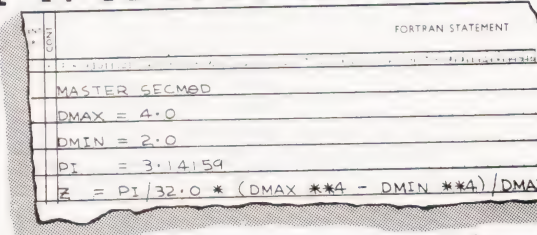 CONT
FORTRAN STATEMENT
MASTER SECMOD
DMAX = 4.0
DMIN = 2.0
PI = 3.14159
Z = PI/32.0 * (DMAX **4 - DMIN **4)/DMA